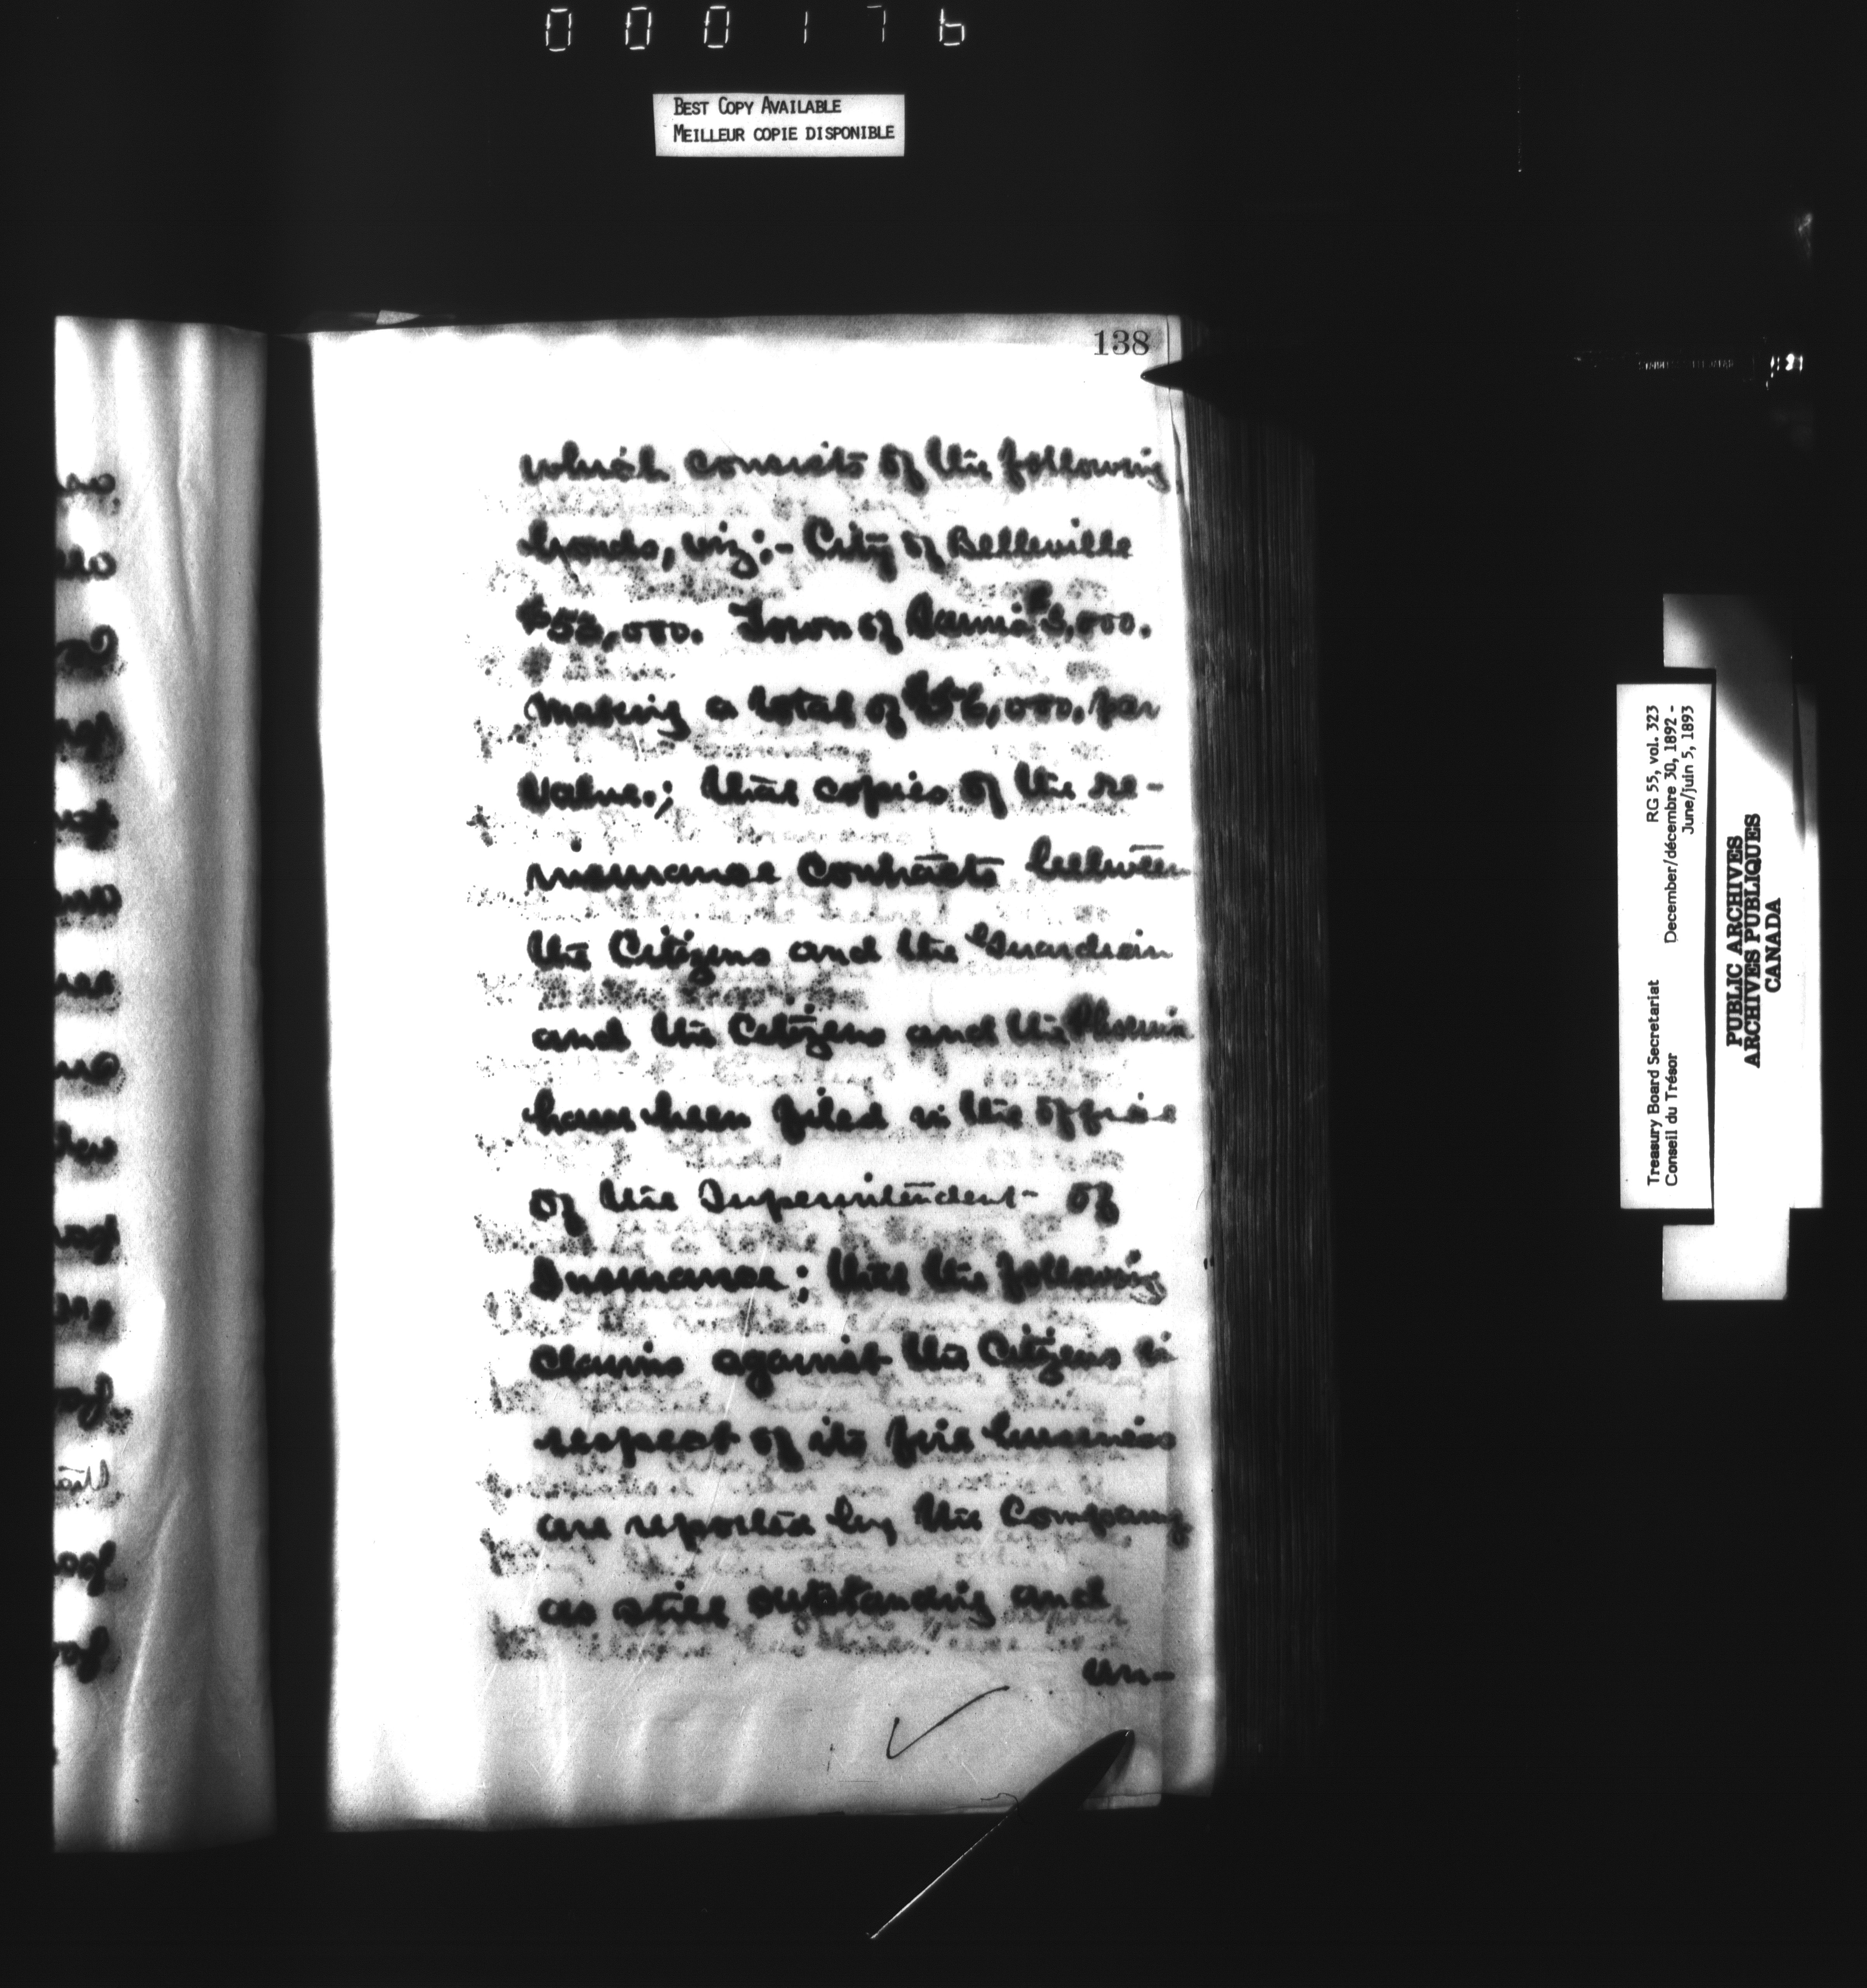 000176
BEST COPY AVAILABLE
MEILLEUR COPIE DISPONIBLE
138
which consists of the following
bonds, viz:- City of Belleville
$53,000. Town of Sarnia $3,000.
making a total of $56,000. par
value.; that copies of the re-
insurance contracts between
the Citizens and the Guardian
and the Citizens and the Phoenix
have been filed in the office
of the Superintendent of
Insurance; that the following
claims against the Citizens in
respect of its fire business
are reported by the Company
as still outstanding and
un-
Treasury Board Secretariat RG 55, vol. 323
Conseil du Trésor December/décembre 30, 1892 -
June/juin 5, 1893
PUBLIC ARCHIVES
ARCHIVES PUBLIQUES
CANADA